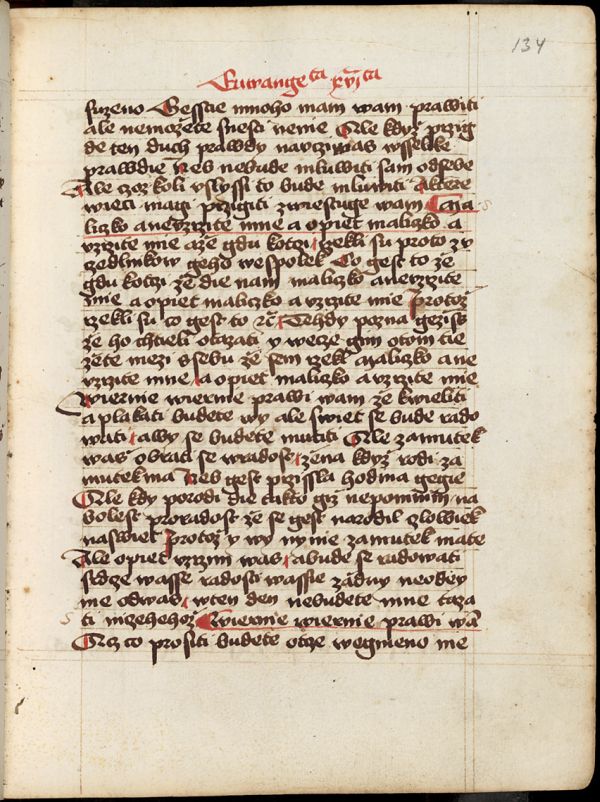 134
Euwange ta xvj ta
suzeno Gesstie mnoho mam wam prawiti
ale nemozete snesti nenie Ale kdyz przig
de ten duch prawdy nauczi was wsselike
prawdie Neb nebude mluwiti sam odsebe
Ale czoz koli uslyssi to bude mluwiti Aktere
wieci magi przigiti zwiestuge wam Ma
liczko a neuzrzite mne a opiet maliczko a
uzrzite mie aze gdu kotczi rzekli su proto z u
czedlnikow geho wespolek Co gest to ze
gdu kotczi ze die nam maliczko aneuzrzite
mie a opiet maliczko a uzrzite mie Protoz
rzekli su co gest to rc Tehdy pozna geziss
ze ho chtieli otazati y wecze gim otom tie
zete mezi ssebu ze sem rzekl Maliczko a ne
uzrzite mne a opiet maliczko a uzrzite mie
Wiernie wiernie prawi wam ze kwieliti
a plakati budete wy ale swiet se bude rado
wati awy se budete mutiti Ale zamutek
was obrati se wradost zena kdyz rodi za
mutek ma Neb gest przissla hodina gegie
Ale kdy porodi die takto giz nepomnim na
bolest proradost ze se gest narodil czlowiek
naswiet Protoz y wy nynie zamutek mate
Ale opiet uzrzim was abude se radowati
srdcze wasse radosti wassie zadny neodey
me odwas wten den nebudete mne taza
ti niczehehoz Wiernie wiernie prawi wa
Acz co prositi budete otcze wegmeno me